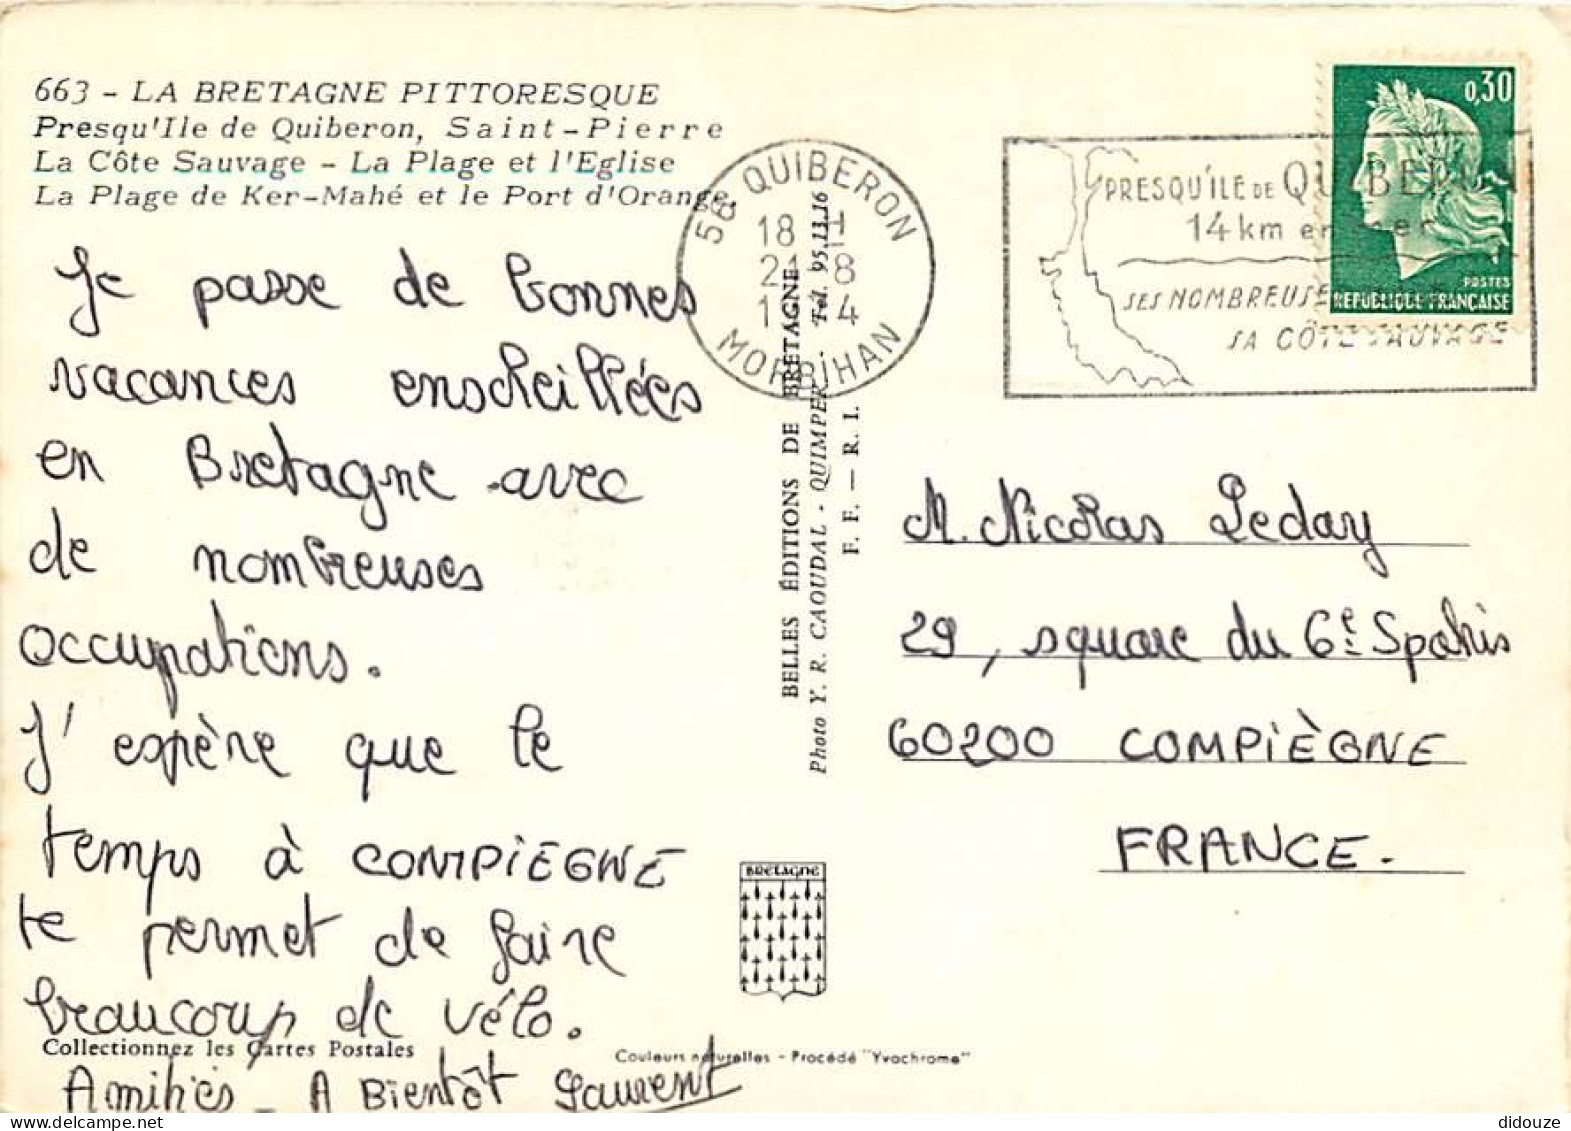 663 - LA BRETAGNE PITTORESQUE
Presqu'Ile de Quiberon, Saint-Pierre
La Côte Sauvage - La Plage et l'Eglise
La Plage de Ker-Mahé et le Port d'Orange.
Je passe de bonnes
vacances ensoleillées
en Bretagne avec
de nombreuses
occupations.
J'espère que le
temps à COMPIEGNE
te permet de faire
beaucoup de vélo.
Amitiés - A Bientôt Laurent
Collectionnez les Cartes Postales
56 QUIBERON
18 H
21 8
MORBIHAN
PRESQU'ÎLE DE QUIBERON
14 km en mer
SES NOMBREUSES
SA CÔTE SAUVAGE
0,30
POSTES
REPUBLIQUE FRANÇAISE
BELLES ÉDITIONS DE BRETAGNE
Photo Y. R. CAOUDAL - QUIMPER Tél. 95.11.16
F. F. — R. I.
M. Nicolas Leday
29, square du 6e Spahis
60200 COMPIÈGNE
FRANCE.
BRETAGNE
Couleurs naturelles - Procédé "Yvochrome"
didouze